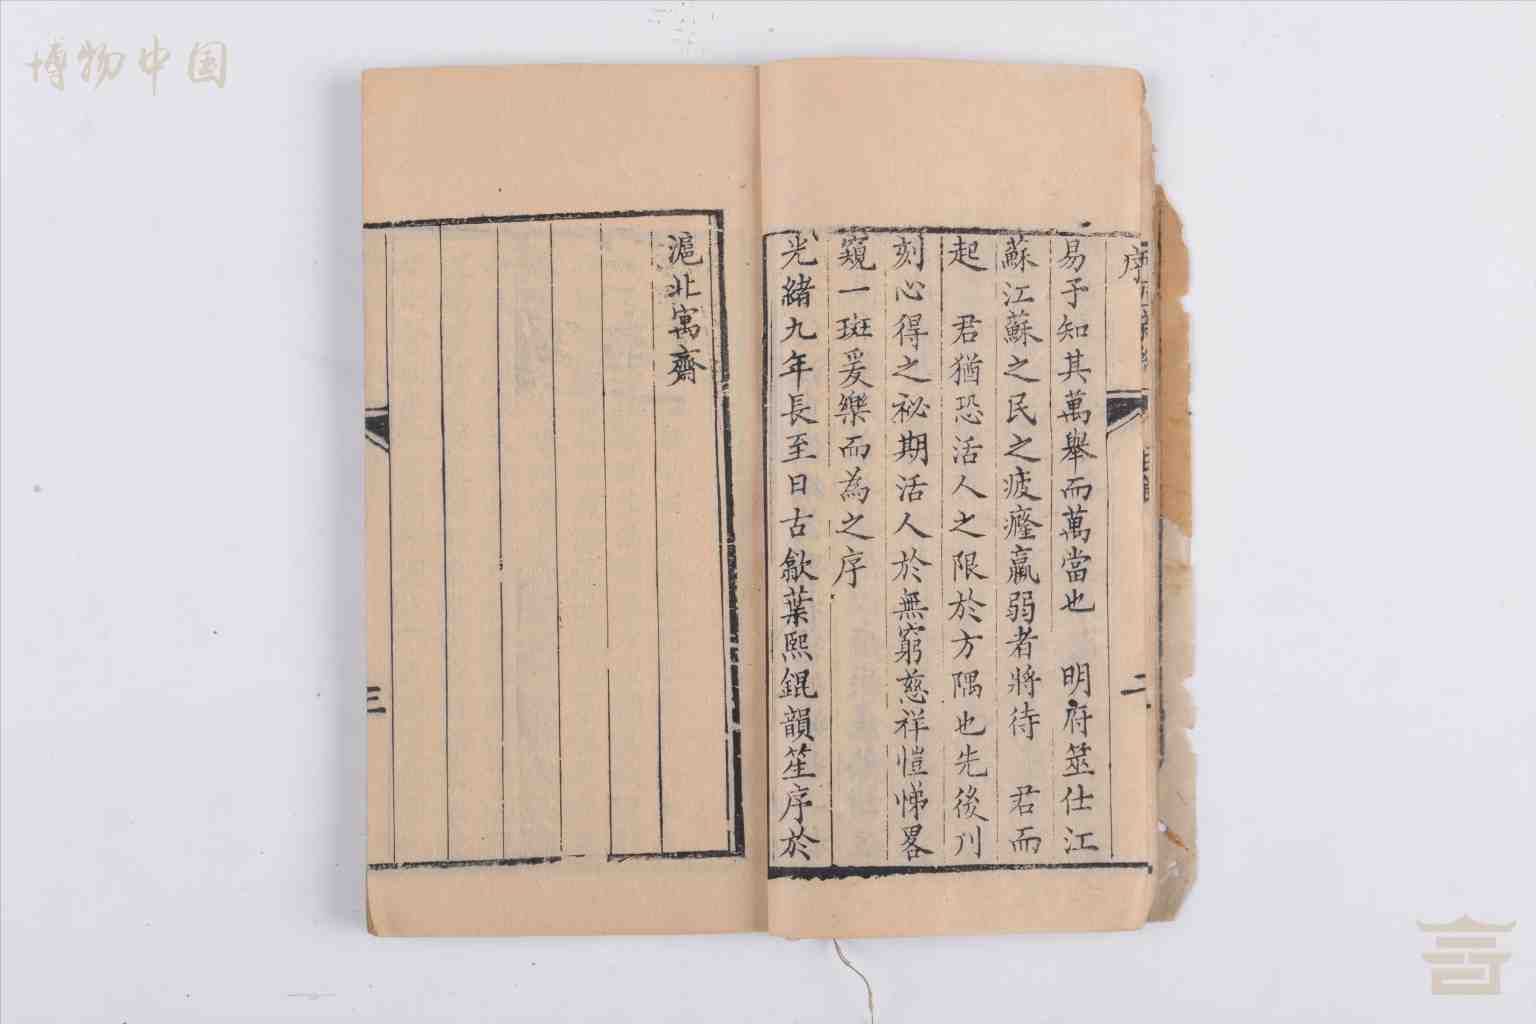 博物中国
序
二
易予知其萬舉而萬當也　明府筮仕江
蘇江蘇之民之疲癃羸弱者將待　君而
起　君猶恐活人之限於方隅也先後刋
刻心得之祕期活人於無窮慈祥愷悌畧
窺一斑爰樂而為之序
光緒九年長至日古歙葉熙錕韻笙序於
滬北寓齋
三